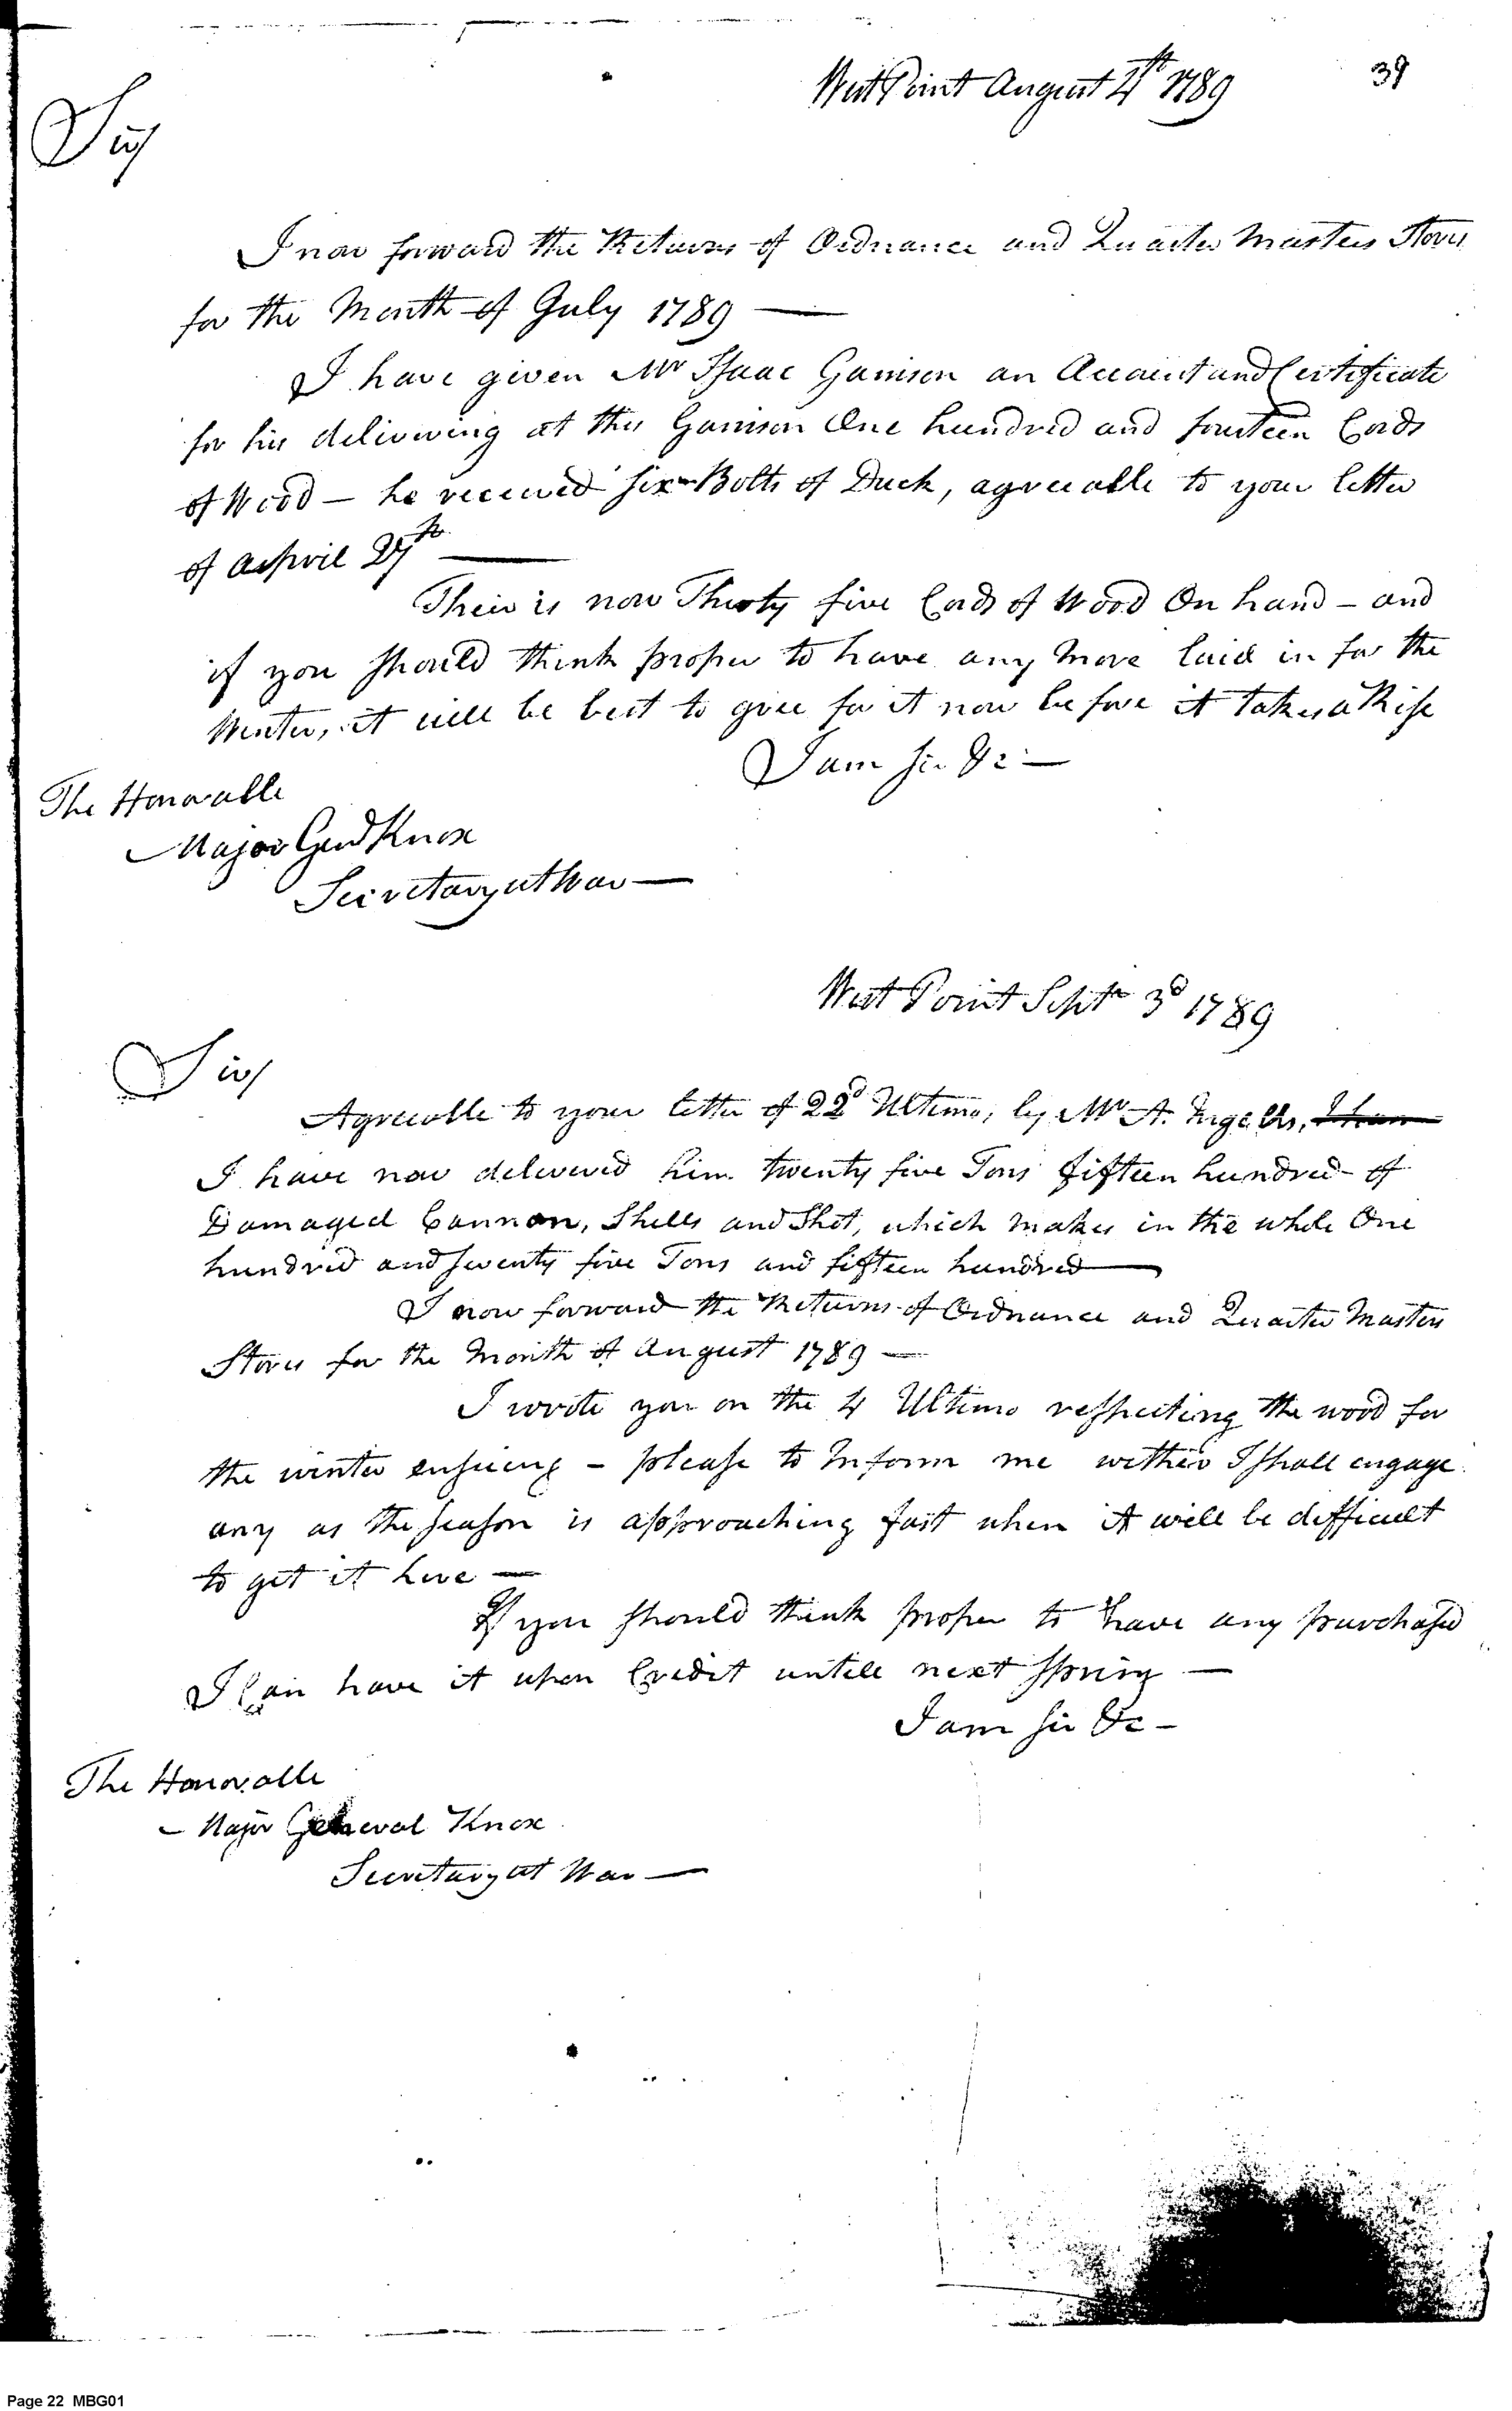 39
West Point August 4th 1789
Sir/
I now forward the Returns of Ordnance and Quarter Masters Stores
for the Month of July 1789 —
I have given Mr Isaac Garrison an Account and Certificate
for his delivering at this Garrison One hundred and fourteen Cords
of Wood — he received six Bolts of Duck, agreeable to your letter
of Aspril 27th —
Their is now Thirty five Cords of Wood On hand — and
if you should think proper to have any more laid in for the
Winter, it will be best to gree for it now before it takes a Rise
I am Sir &c —
The Honorable
Major Genl Knox
Secretary at War —
West Point Septr 3d 1789
Sir/
Agreeable to your letter of 22d Ultimo, by Mr A. Ingells, I have
I have now delivered him twenty five Tons fifteen hundred of
Damaged Cannon, Shells and Shot, which makes in the whole One
hundred and twenty five Tons and fifteen hundred —
I now forward the Returns of Ordnance and Quarter Masters
Stores for the Month of August 1789 —
I wrote you on the 4 Ultimo respecting the wood for
the winter ensueing — please to Inform me wether I shall engage
any as the season is approaching fast when it will be difficult
to get it here —
If you should think proper to have any purchased
I Can have it upon Credit untill next Spring —
I am Sir &c —
The Honorable
Major General Knox
Secretary at War —
Page 22 MBG01